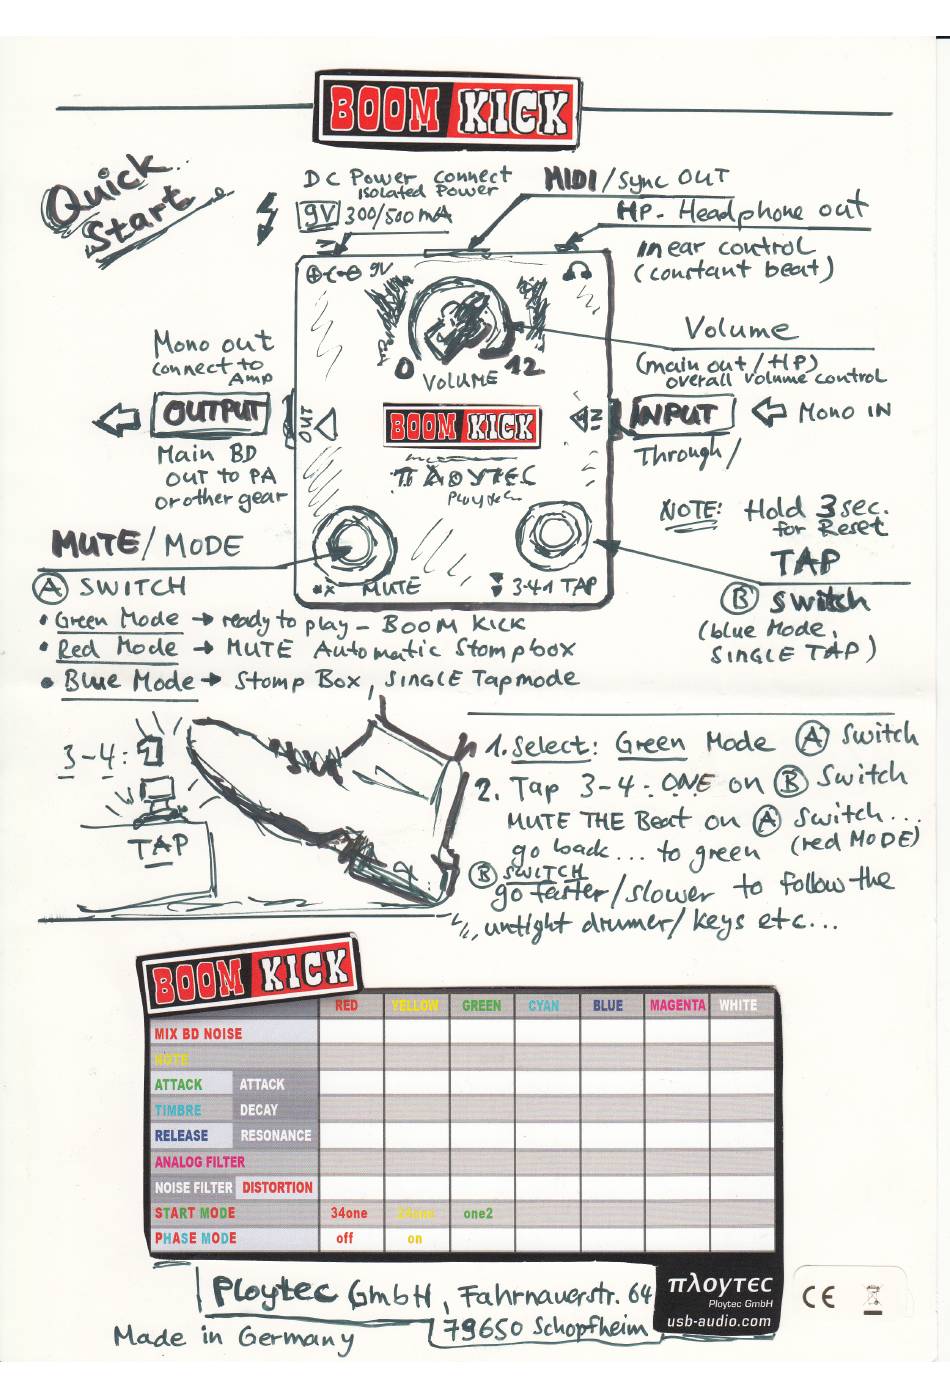 BOOM KICK
Quick
Start
DC Power connect
isolated Power
9V 300/500mA
MIDI/Sync OUT
HP- Headphone out
in ear control
(constant beat)
9V
0 VOLUME 12
Volume
(main out/HP)
overall volume control
Mono out
connect to
Amp
OUTPUT
Main BD
OUT to PA
or other gear
OUT
BOOM KICK
πλOYTEC
Ploytec
IN
INPUT
Mono IN
Through/
NOTE: Hold 3 sec.
for Reset
TAP
B Switch
(blue Mode,
SINGLE TAP)
MUTE
3-4-1 TAP
MUTE/MODE
A SWITCH
• Green Mode → ready to play - BOOM KICK
• Red Mode → MUTE Automatic Stompbox
• Blue Mode → Stomp Box, SINGLE Tapmode
3-4: 1
TAP
1. Select: Green Mode A Switch
2. Tap 3-4: ONE on B Switch
MUTE THE Beat on A Switch...
go back... to green (red MODE)
B SWITCH
go faster/slower to follow the
untight drummer/keys etc...
BOOM KICK
RED YELLOW GREEN CYAN BLUE MAGENTA WHITE
MIX BD NOISE
NOTE
ATTACK ATTACK
TIMBRE DECAY
RELEASE RESONANCE
ANALOG FILTER
NOISE FILTER DISTORTION
START MODE 34one one2
PHASE MODE off on
Ploytec GmbH, Fahrnauerstr. 64
79650 Schopfheim
Made in Germany
πλογτεc
Ploytec GmbH
usb-audio.com
CE